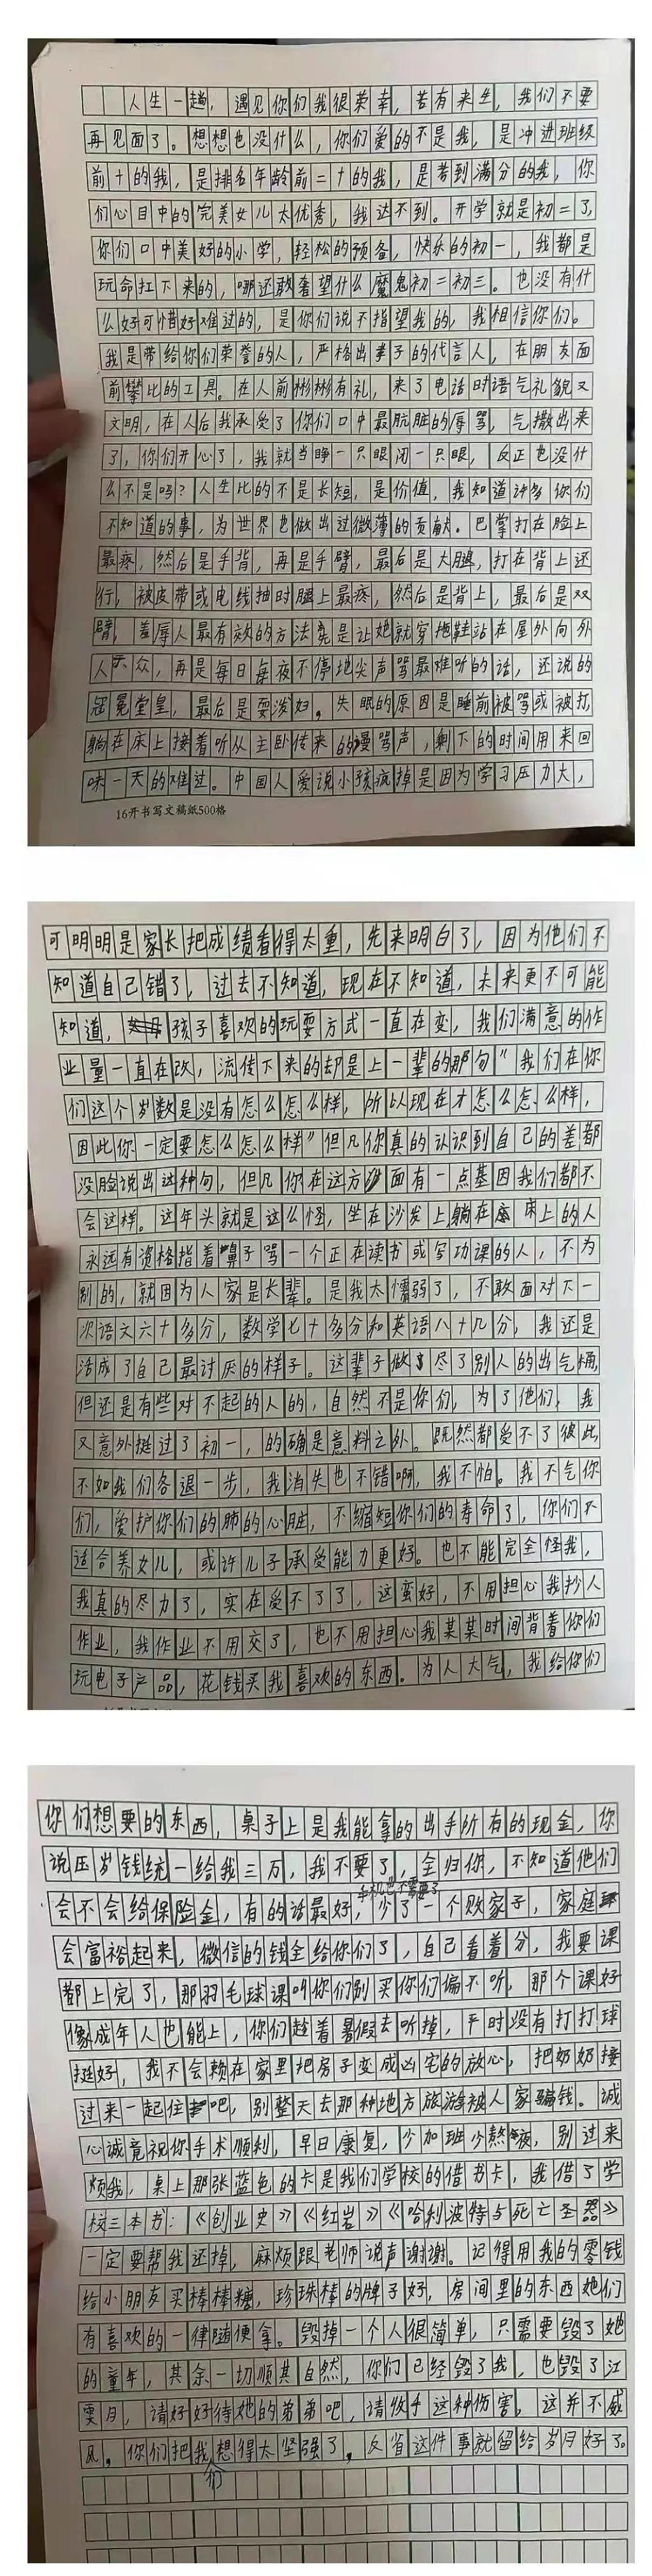 人生一趟，遇见你们我很荣幸，若有来生，我们不要
再见面了。想想也没什么，你们爱的不是我，是冲进班级
前十的我，是排名年龄前二十的我，是考到满分的我，你
们心目中的完美女儿太优秀，我达不到。开学就是初二了，
你们口中美好的小学，轻松的预备，快乐的初一，我都是
玩命扛下来的，哪还敢奢望什么魔鬼初二初三。也没有什
么好可惜好难过的，是你们说不指望我的，我相信你们。
我是带给你们荣誉的人，严格出孝子的代言人，在朋友面
前攀比的工具。在人前彬彬有礼，来了电话时语气礼貌又
文明，在人后我承受了你们口中最肮脏的辱骂，气撒出来
了，你们开心了，我就当睁一只眼闭一只眼，反正也没什
么不是吗？人生比的不是长短，是价值，我知道许多你们
不知道的事，为世界也做出过微薄的贡献。巴掌打在脸上
最疼，然后是手背，再是手臂，最后是大腿，打在背上还
行，被皮带或电线抽时腿上最疼，然后是背上，最后是双
臂，羞辱人最有效的方法竟是让她就穿拖鞋站在屋外向外
人示众，再是每日每夜不停地尖声骂最难听的话，还说的
冠冕堂皇，最后是耍泼妇。失眠的原因是睡前被骂或被打，
躺在床上接着听从主卧传来的谩骂声，剩下的时间用来回
味一天的难过。中国人爱说小孩疯掉是因为学习压力大，
16开书写文稿纸500格
可明明是家长把成绩看得太重，先来明白了，因为他们不
知道自己错了，过去不知道，现在不知道，未来更不可能
知道，孩子喜欢的玩耍方式一直在变，我们满意的作
业量一直在改，流传下来的却是上一辈的那句“我们在你
们这个岁数是没有怎么怎么样，所以现在才怎么怎么样，
因此你一定要怎么怎么样”但凡你真的认识到自己的差都
没脸说出这种句，但凡你在这方面有一点基因我们都不
会这样。这年头就是这么怪，坐在沙发上躺在床上的人
永远有资格指着鼻子骂一个正在读书或写功课的人，不为
别的，就因为人家是长辈。是我太懦弱了，不敢面对下一
次语文六十多分，数学七十多分和英语八十几分，我还是
活成了自己最讨厌的样子。这辈子做尽了别人的出气桶，
但还是有些对不起的人的，自然不是你们，为了他们，我
又意外挺过了初一，的确是意料之外。既然都受不了彼此，
不如我们各退一步，我消失也不错啊，我不怕。我不气你
们，爱护你们的肺的心脏，不缩短你们的寿命了，你们不
适合养女儿，或许儿子承受能力更好。也不能完全怪我，
我真的尽力了，实在受不了了，这蛮好，不用担心我抄人
作业，我作业不用交了，也不用担心我某某时间背着你们
玩电子产品，花钱买我喜欢的东西。为人大气，我给你们
你们想要的东西，桌子上是我能拿的出手所有的现金，你
说压岁钱统一给我三万，我不要了，全归你，不知道他们
手机也不需要了
会不会给保险金，有的话最好，少了一个败家子，家庭
会富裕起来，微信的钱全给你们了，自己看着分，我要课
都上完了，那羽毛球课叫你们别买你们偏不听，那个课好
像成年人也能上，你们趁着暑假去听掉，平时没有打打球
挺好，我不会赖在家里把房子变成凶宅的放心，把奶奶接
过来一起住吧，别整天去那种地方旅游被人家骗钱。诚
心诚意祝你手术顺利，早日康复，少加班少熬夜，别过来
烦我，桌上那张蓝色的卡是我们学校的借书卡，我借了学
校三本书：《创业史》《红岩》《哈利波特与死亡圣器》
一定要帮我还掉，麻烦跟老师说声谢谢。记得用我的零钱
给小朋友买棒棒糖，珍珠棒的牌子好，房间里的东西她们
有喜欢的一律随便拿。毁掉一个人很简单，只需要毁了她
的童年，其余一切顺其自然，你们已经毁了我，也毁了江
雯月，请好好待她的弟弟吧，请收手这种伤害，这并不威
风。你们把我们想得太坚强了，反省这件事就留给岁月好了。